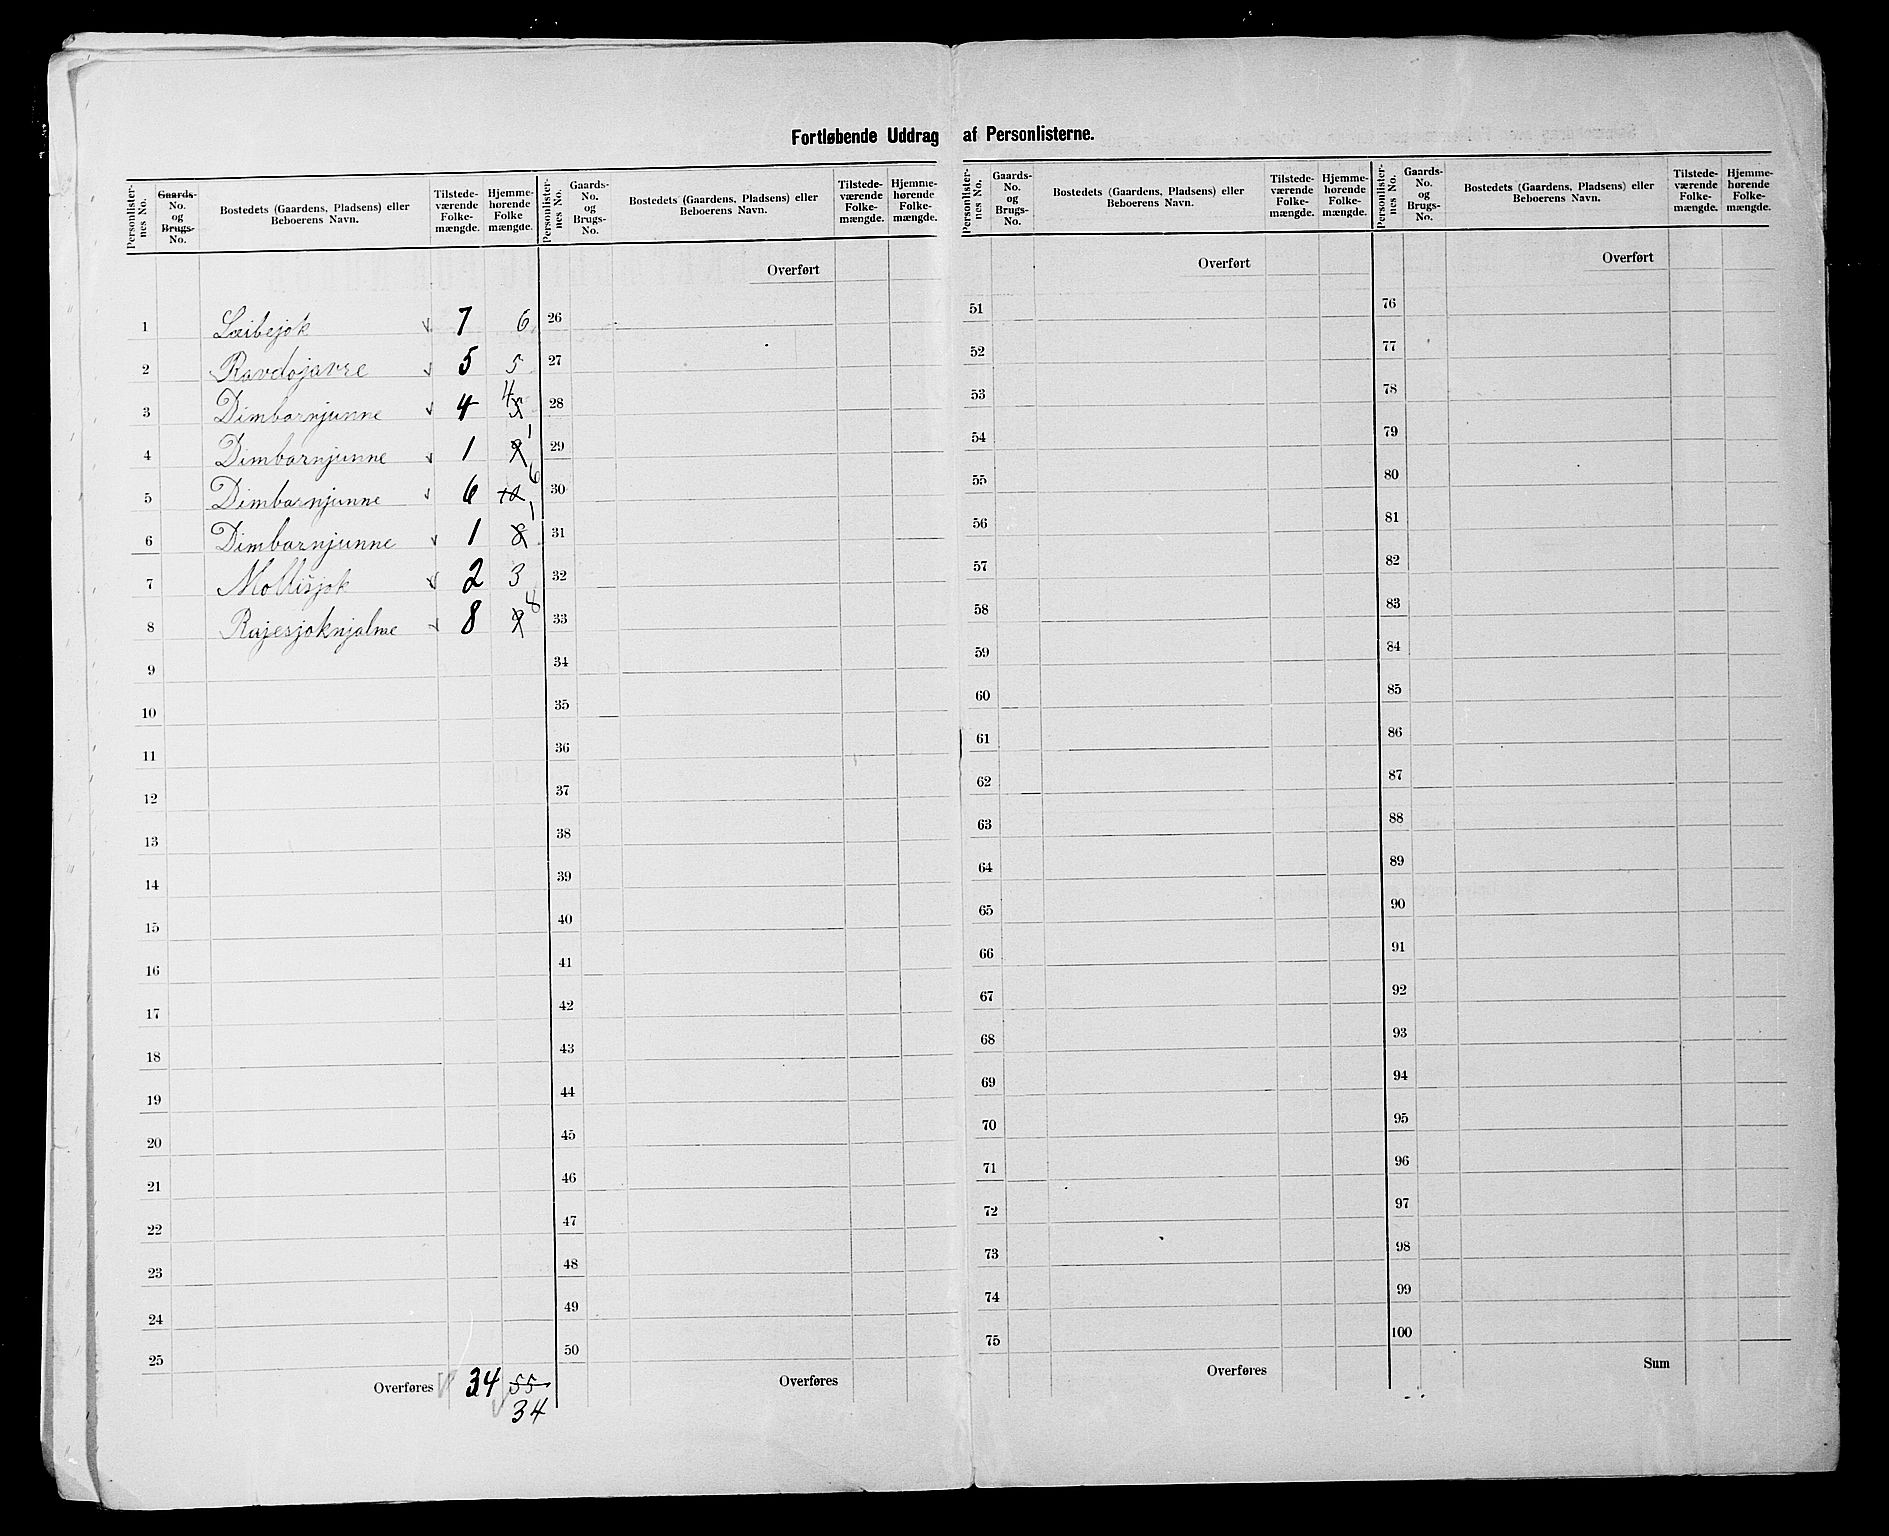 Fortløbende Uddrag af Personlisterne.
Personlisternes No. Gaards-No. og Brugs-No. Bostedets (Gaardens, Pladsens) eller Beboerens Navn. Tilstedeværende Folkemængde. Hjemmehørende Folkemængde.
1 Læibejok 7 6
2 Ravdojavre 5 5
3 Dimbarnjunne 4 5 4
4 Dimbarnjunne 1 9 1
5 Dimbarnjunne 6 10 6
6 Dimbarnjunne 1 8 1
7 Mollisjok 2 3
8 Rajesjoknjalme 8 9 8
9
10
11
12
13
14
15
16
17
18
19
20
21
22
23
24
25
Overføres 34 55
34
Personlisternes No. Gaards-No. og Brugs-No. Bostedets (Gaardens, Pladsens) eller Beboerens Navn. Tilstedeværende Folkemængde. Hjemmehørende Folkemængde.
Overført
26
27
28
29
30
31
32
33
34
35
36
37
38
39
40
41
42
43
44
45
46
47
48
49
50
Overføres
Personlisternes No. Gaards-No. og Brugs-No. Bostedets (Gaardens, Pladsens) eller Beboerens Navn. Tilstedeværende Folkemængde. Hjemmehørende Folkemængde.
Overført
51
52
53
54
55
56
57
58
59
60
61
62
63
64
65
66
67
68
69
70
71
72
73
74
75
Overføres
Personlisternes No. Gaards-No. og Brugs-No. Bostedets (Gaardens, Pladsens) eller Beboerens Navn. Tilstedeværende Folkemængde. Hjemmehørende Folkemængde.
Overført
76
77
78
79
80
81
82
83
84
85
86
87
88
89
90
91
92
93
94
95
96
97
98
99
100
Sum